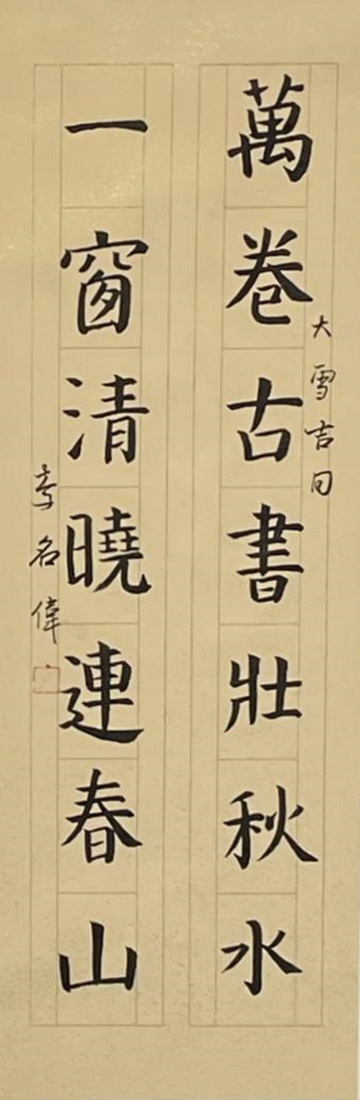 萬卷古書壯秋水
大雪吉日
一窗清曉連春山
李名偉